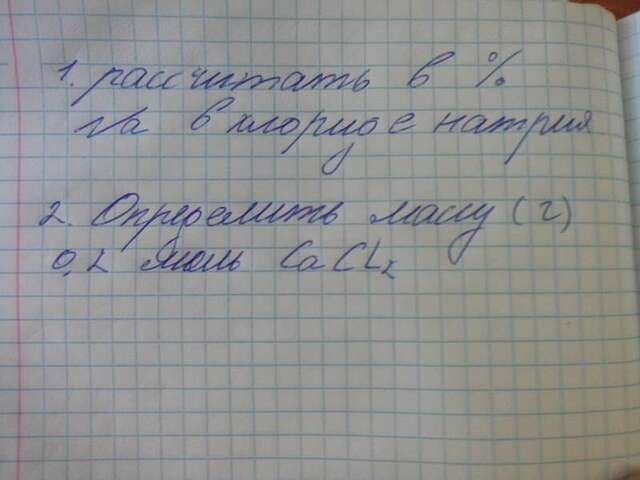 1. рассчитать в %
Na в хлориде натрия
2. Определить массу (г)
0,2 моль CaCl₂